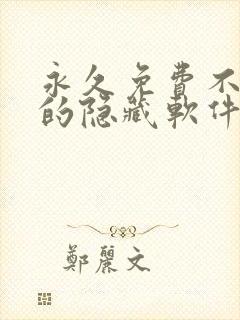 永久免費不
的隐藏軟件
鄭麗文